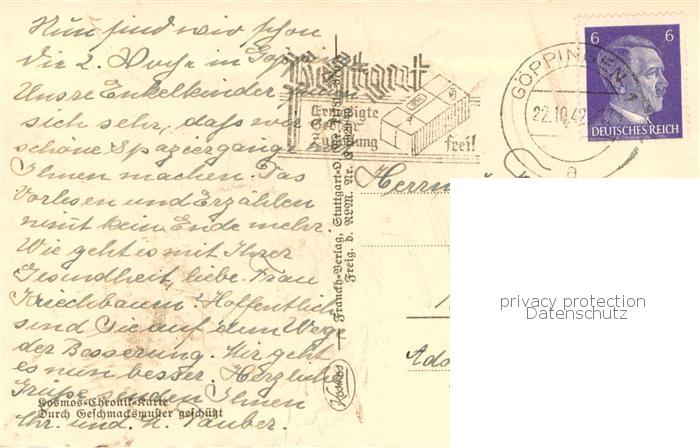 Nun sind wir schon
die 2. Woche in Göpp
Unsre Enkelkinder
sich sehr, daß wir
schöne Spaziergäng
Ihnen machen. Das
Vorlesen und Erzählen
nimt kein Ende mehr.
Wie geht es mit Ihrer
Gesundheit, liebe Frau
Kriechbaum? Hoffentlich
sind Sie auf dem Wege
der Besserung. Mir geht
es nun besser. Herzliche
Grüße senden Ihnen
Ihr. und H. Tauber.
Kosmos-Chronik-Karte
Durch Geschmacksmuster geschützt
Postgut
Ermäßigte
Gebühr
Zustellung frei!
Franckh-Verlag, Stuttgart-O
Freig. d. RLM. Nr.
Kosmos
GÖPPINGEN 1
22.10.42
a
6 6
DEUTSCHES REICH
Herrn
Ado
privacy protection
Datenschutz